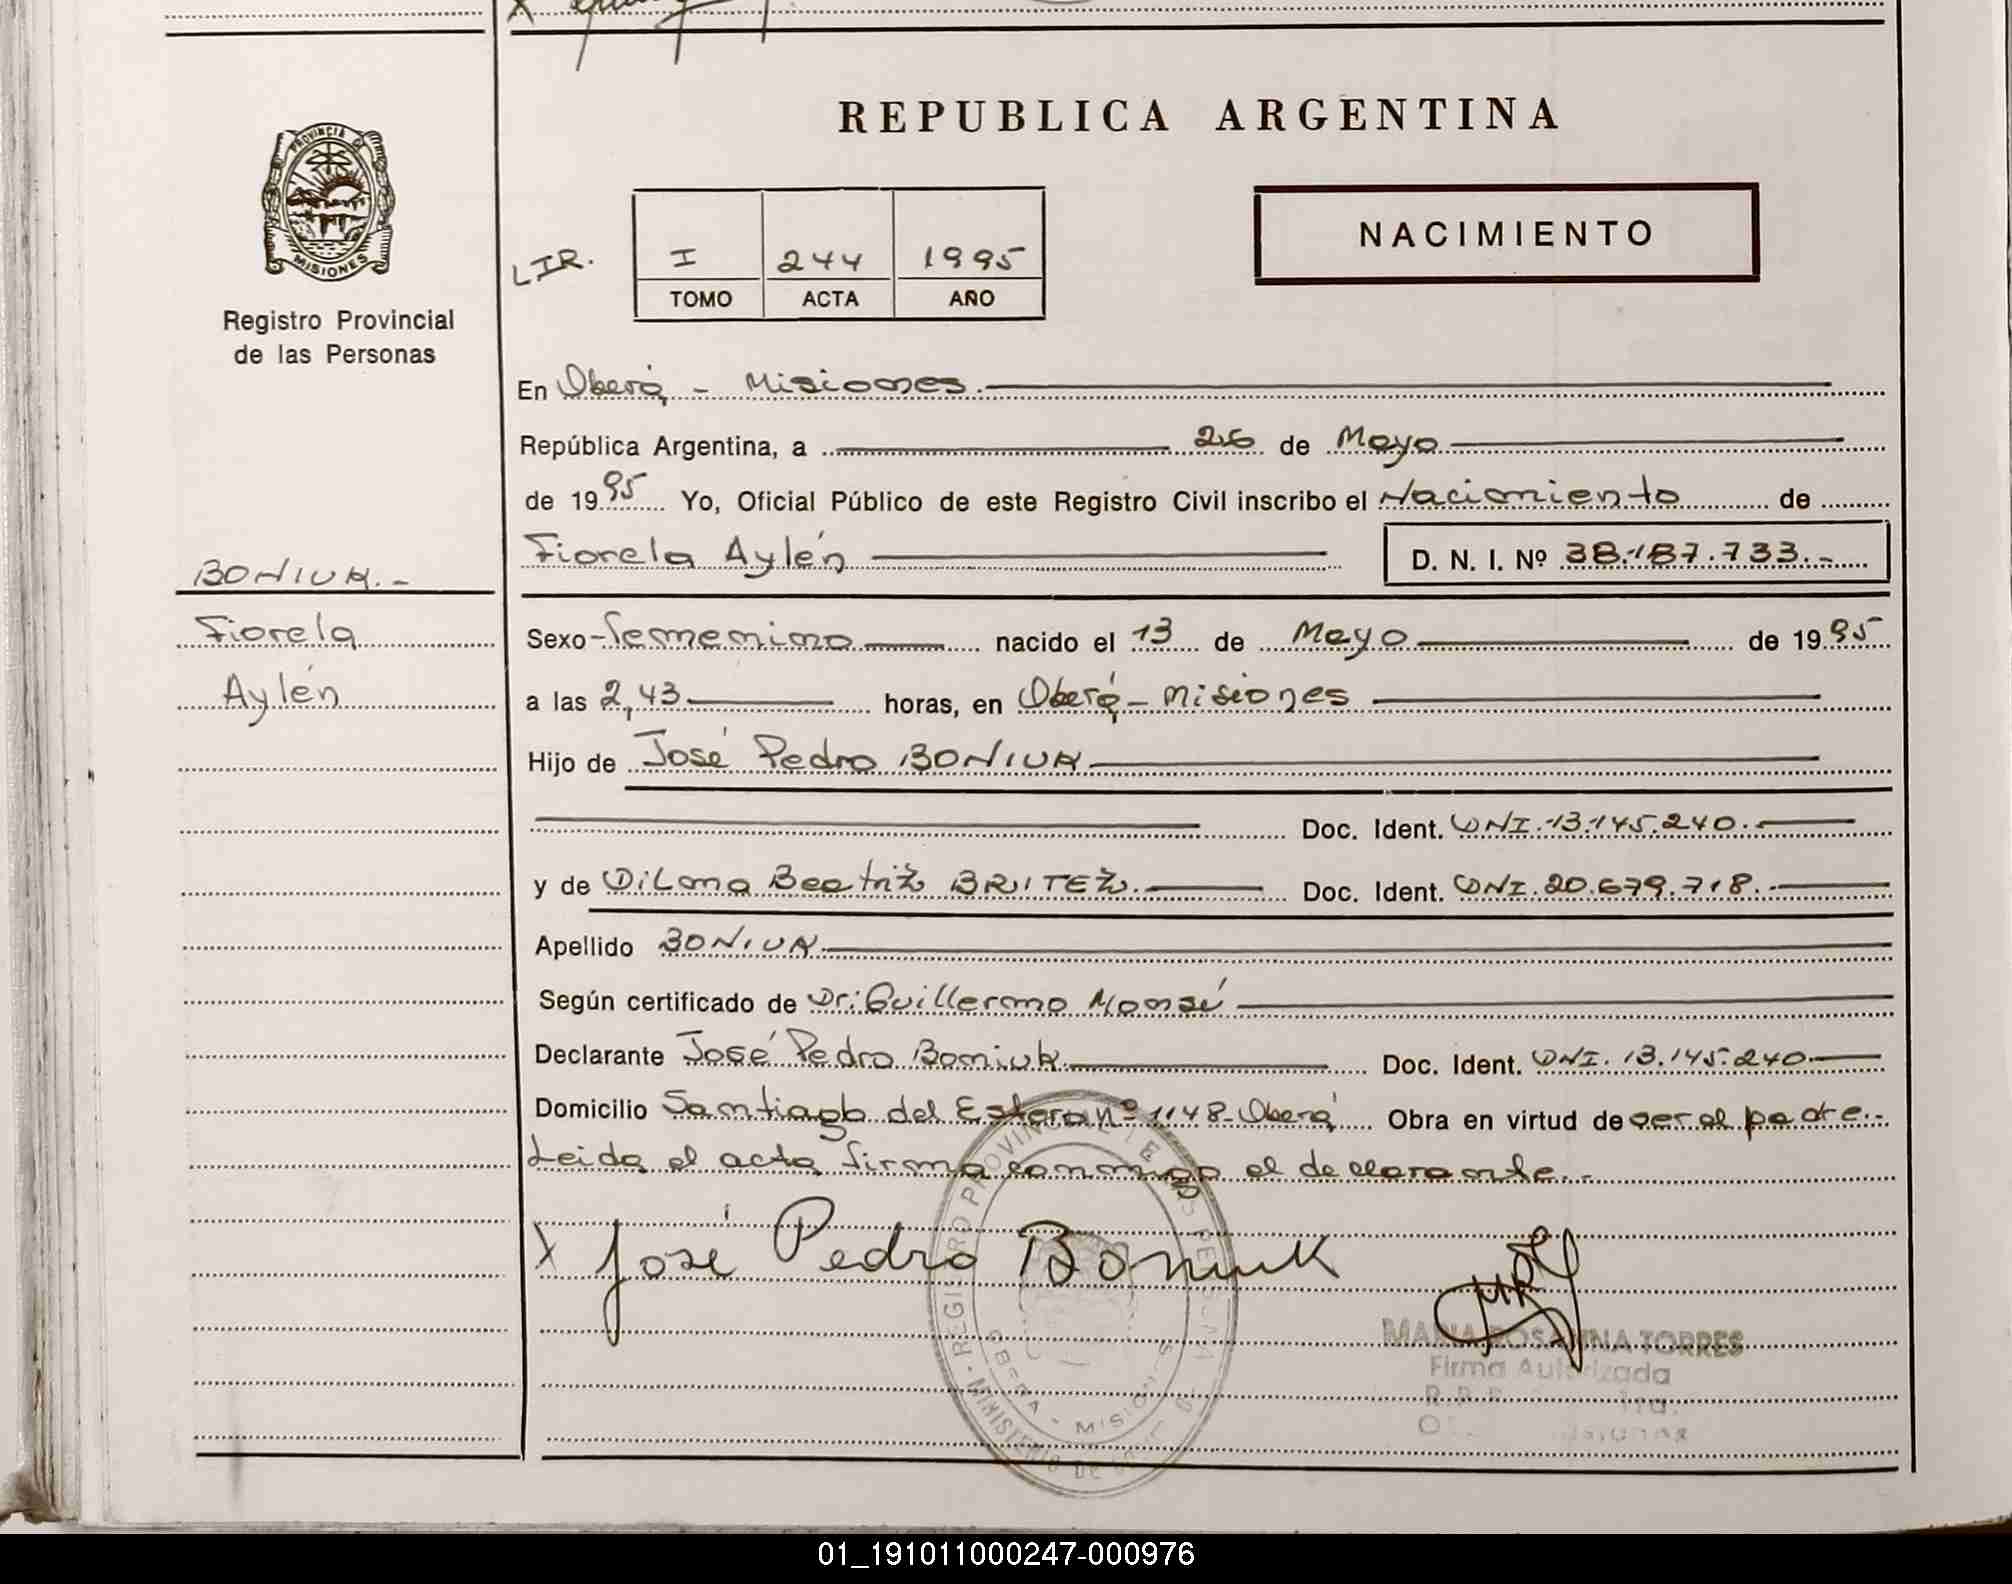 REPUBLICA ARGENTINA
PROVINCIA DE
MISIONES
Registro Provincial
de las Personas
NACIMIENTO
LIR.
I 244 1995
TOMO ACTA AÑO
En Oberá - Misiones.
República Argentina, a 26 de Mayo
de 1995 Yo, Oficial Público de este Registro Civil inscribo el Nacimiento de
Fiorela Aylén D. N. I. Nº 38.187.733.-
BONIUK.-
Fiorela
Aylén
Sexo Femenino nacido el 13 de Mayo de 1995
a las 2,43 horas, en Oberá - Misiones
Hijo de José Pedro BONIUK
Doc. Ident. DNI. 13.145.240.
y de Dilma Beatriz BRITEZ. Doc. Ident. DNI. 20.679.718.
Apellido BONIUK.
Según certificado de Dr. Guillermo
Declarante José Pedro Boniuk. Doc. Ident. DNI. 13.145.240
Domicilio Santiago del Estero nº 1148-Oberá Obra en virtud de ser el padre.-
Leida el acta firma conmigo el declarante.-
X José Pedro Boniuk
MARIA ROSANNA TORRES
Firma Autorizada
REGISTRO PROVINCIAL DE LAS PERSONAS
OBERA - MISIONES
MINISTERIO DE
01_191011000247-000976